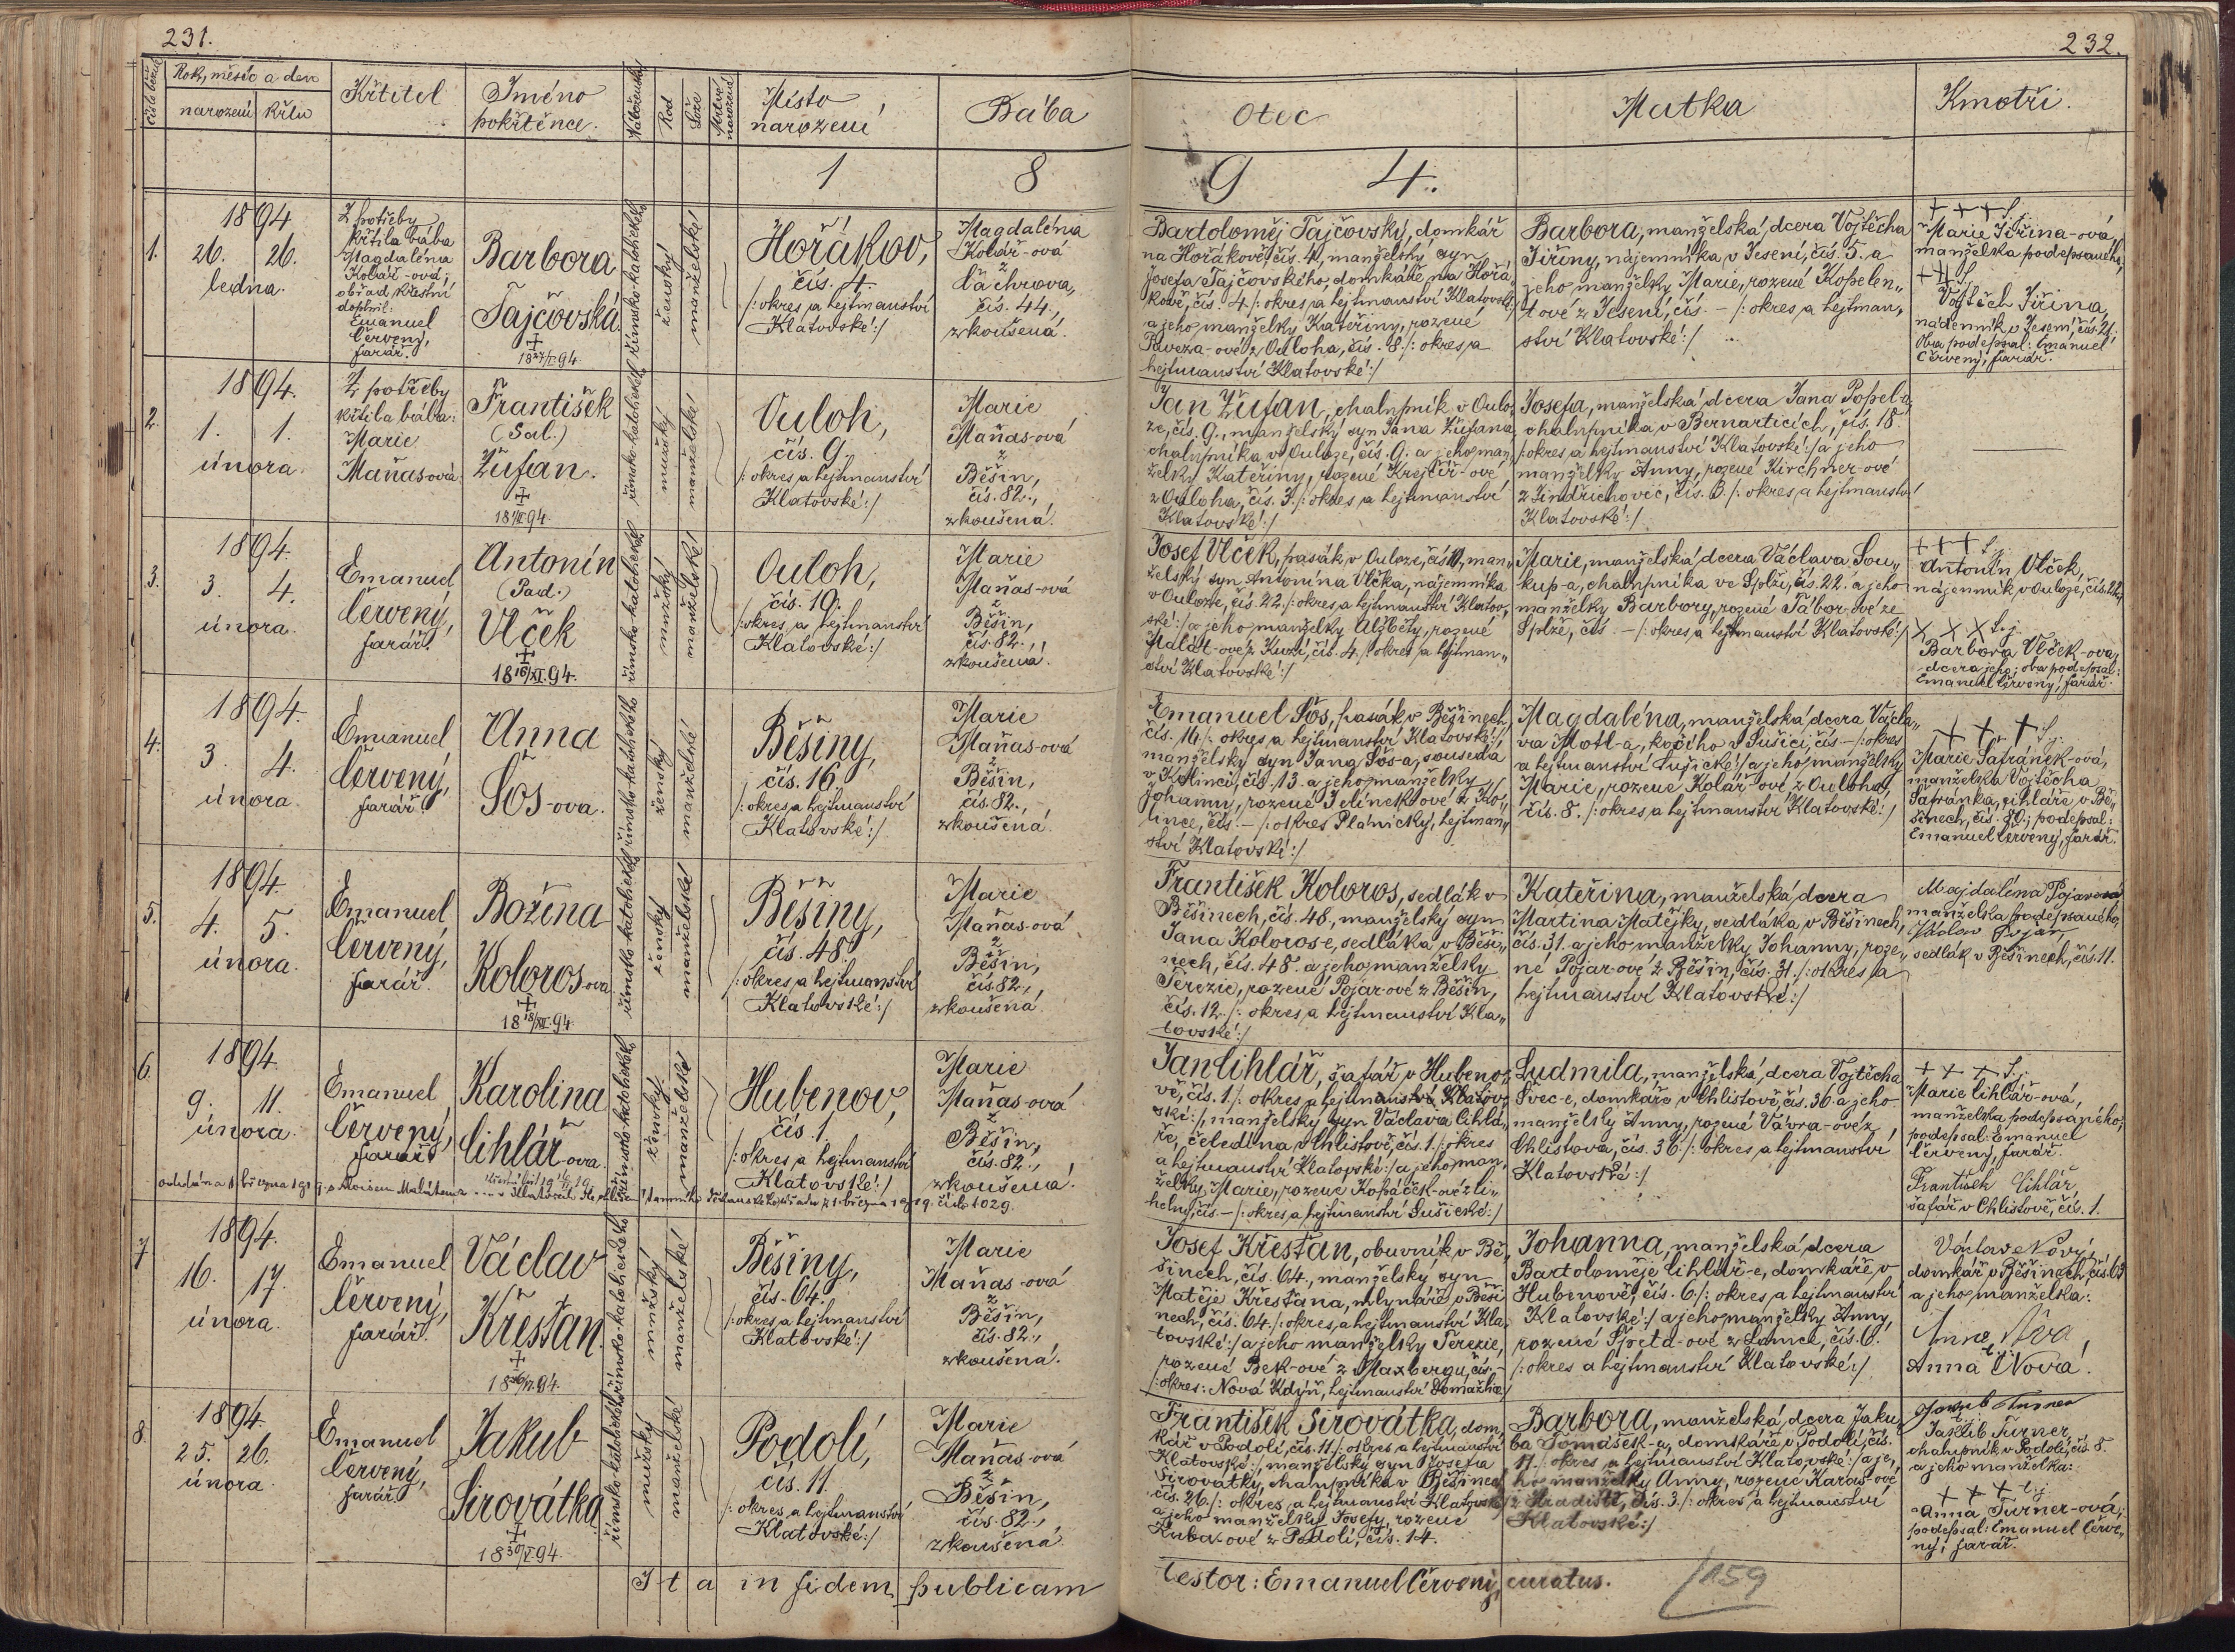 231.
232.
číslo běžné
Rok, měsíc a den
narození
křtu
Křtitel
Jméno
pokřtěnce.
Náboženský
Rod
Lože
Mrtvě
narozené
Místo
narození
Bába
Otec
Matka
Kmotři.
1 8 9 4.
1.
1894
26. 26.
ledna.
Z potřeby
křtila bába
Magdaléna
Kolář-ová;
obřad křestní
doplnil:
Emanuel
Červený,
farář.
Barbora
Tajčovská
18 27/I. 94.
římsko-katolického
ženský
manželské
Hořákov,
čís. 4.
/: okres a hejtmanství
Klatovské :/
Magdaléna
Kolář-ová
z
Čachrova,
čís. 44.,
zkoušená.
Bartoloměj Tajčovský, domkář
na Hořákově, čís. 4., manželský syn
Josefa Tajčovského, domkáře na Hořá-
kově, čís. 4 /: okres a hejtmanství Klatovské :/
a jeho manželky Kateřiny, rozené
Paveza-ové z Ouloha, čís. 8. /: okres a
hejtmanství Klatovské :/
Barbora, manželská dcera Vojtěcha
Jiřiny, nájemníka v Jesení, čís. 5. a
jeho manželky Marie, rozené Kopelen„
tové z Jesení, čís. — /: okres a hejtman„
ství Klatovské :/
+ + +
Marie Jiřina-ová,
manželka podepsaného,
+++
Vojtěch Jiřina,
nádenník v Jesení, čís. 21.
Oba podepsal: Emanuel
Červený, farář.
2.
1894.
1. 1.
února.
Z potřeby
křtila bába:
Marie
Maňas-ová
František
(Sal.)
Žufan.
18 1/II. 94.
římsko-katolického
mužský
manželské
Ouloh,
čís. 9.
/: okres a hejtmanství
Klatovské :/
Marie
Maňas-ová
z
Běšin,
čís. 82.,
zkoušená.
Jan Žufan, chalupník v Oulo„
ze, čís. 9., manželský syn Jana Žufana,
chalupníka v Ouloze, čís. 9. a jeho man„
želky Kateřiny, rozené Krejčíř-ové
z Ouloha, čís. 3. /: okres a hejtmanství
Klatovské :/
Josefa, manželská dcera Jana Popel-a,
chalupníka v Bernarticích, čís. 18.
/: okres a hejtmanství Klatovské :/ a jeho
manželky Anny, rozené Kirchner-ové
z Jindřichovic, čís. 8. /: okres a hejtmanství
Klatovské :/
3.
1894.
3. 4.
února.
Emanuel
Červený,
farář.
Antonín
(Pad.)
Vlček
18 16/XI. 94.
římsko-katolického
mužský
manželské
Ouloh,
čís. 19.
/: okres a hejtmanství
Klatovské :/
Marie
Maňas-ová
z
Běšin,
čís. 82.,
zkoušená.
Josef Vlček, pasák v Ouloze, čís. 19, man„
želský syn Antonína Vlčka, nájemníka
v Ouloze, čís. 22. /: okres a hejtmanství Klatov„
ské :/ a jeho manželky Alžběty, rozené
Malát-ové z Kuzí, čís. 4. /: okres a hejtman„
ství Klatovské :/
Marie, manželská dcera Václava Sou„
kup-a, chalupníka ve Splži, čís. 22. a jeho
manželky Barbory, rozené Tábor-ové ze
Splže, čís. — /: okres a hejtmanství Klatovské :/
+ + +
Antonín Vlček,
nájemník v Ouloze, čís. 22.,
X X X
Barbora Vlček-ová,
dcera jeho; oba podepsal:
Emanuel Červený, farář.
4.
1894.
3. 4.
února.
Emanuel
Červený,
farář.
Anna
Šos-ova.
římsko-katolického
ženský
manželské
Běšiny,
čís. 16.
/: okres a hejtmanství
Klatovské :/
Marie
Maňas-ová
z
Běšin,
čís. 82.,
zkoušená.
Emanuel Šos, pasák v Běšinech,
čís. 16. /: okres a hejtmanství Klatovské :/
manželský syn Jana Šos-a, souseda
v Kolinci, čís. 13. a jeho manželky
Johanny, rozené Jelínek-ové z Ko„
lince, čís. — /: okres Plánický, hejtman„
ství Klatovské :/
Magdaléna, manželská dcera Václa„
va Motl-a, kočího v Sušici, čís. — /: okres
a hejtmanství Sušické :/ a jeho manželky
Marie, rozené Kolář-ové z Ouloha,
čís. 8. /: okres a hejtmanství Klatovské :/
+ + +
Marie Šafránek-ová,
manželka Vojtěcha
Šafránka, cihláře v Bě„
šinech, čís. 80.; podepsal:
Emanuel Červený, farář.
5.
1894.
4. 5.
února.
Emanuel
Červený,
farář.
Božena
Koloros-ova
18 18/XII. 94.
římsko-katolického
ženský
manželské
Běšiny,
čís. 48.
/: okres a hejtmanství
Klatovské :/
Marie
Maňas-ová
z
Běšin,
čís. 82.,
zkoušená.
František Koloros, sedlák v
Běšinech, čís. 48., manželský syn
Jana Koloros-e, sedláka v Běši„
nech, čís. 48. a jeho manželky
Terezie, rozené Pojar-ové z Běšin,
čís. 12. /: okres a hejtmanství Kla„
tovské :/
Kateřina, manželská dcera
Martina Matějky, sedláka v Běšinech,
čís. 31. a jeho manželky Johanny, roze„
né Pojar-ové z Běšin, čís. 31. /: okres a
hejtmanství Klatovské :/
Magdaléna Pojarová
manželka podepsaného,
Václav Pojar,
sedlák v Běšinech, čís. 11.
6.
1894.
9. 11.
února.
Emanuel
Červený,
farář
Karolina
Cihlář-ova.
římsko-katolického
ženský
manželské
Hubenov,
čís. 1.
/: okres a hejtmanství
Klatovské :/
Marie
Maňas-ová
z
Běšin,
čís. 82.,
zkoušená.
Jan Cihlář, šafář v Hubeno„
vě, čís. 1. /: okres a hejtmanství Klatov„
ské :/, manželský syn Václava Cihlá„
ře, čeledína v Chlistově, čís. 1. /: okres
a hejtmanství Klatovské :/ a jeho man„
želky Marie, rozené Kopáček-ové z Li„
helny, čís. — /: okres a hejtmanství Sušické :/
Ludmila, manželská dcera Vojtěcha
Švec-e, domkáře v Chlistově, čís. 36. a jeho
manželky Anny, rozené Vávra-ové z
Chlistova, čís. 36. /: okres a hejtmanství
Klatovské :/
+ + +
Marie Cihlář-ová,
manželka podepsaného;
podepsal: Emanuel
Červený, farář.
František Cihlář,
šafář v Chlistově, čís. 1.
7.
1894.
16. 17.
února.
Emanuel
Červený,
farář.
Václav
Křesťan.
římsko-katolického
mužský
manželské
Běšiny,
čís. 64.
/: okres a hejtmanství
Klatovské :/
Marie
Maňas-ová
z
Běšin,
čís. 82.,
zkoušená.
Josef Křesťan, obuvník v Bě„
šinech, čís. 64., manželský syn
Matěje Křesťana, mlynáře v Běši„
nech, čís. 64. /: okres a hejtmanství Kla„
tovské :/ a jeho manželky Terezie,
rozené Bek-ové z Maxbergu, čís. —
/: okres: Nová Kdýň, hejtmanství Domažlice :/
Johanna, manželská dcera
Bartoloměje Cihlář-e, domkáře v
Hubenově, čís. 6. /: okres a hejtmanství
Klatovské :/ a jeho manželky Anny,
rozené Špeta-ové z Lomce, čís. 6.
/: okres a hejtmanství Klatovské :/
Václav Nový,
domkář v Běšinech, čís. 63
a jeho manželka:
Anna Nová.
8.
1894.
25. 26.
února.
Emanuel
Červený,
farář
Jakub
Sirovátka
18 30/V. 94.
římsko-katolického
mužský
manželské
Podolí,
čís. 11.
/: okres a hejtmanství
Klatovské :/
Marie
Maňas-ová
z
Běšin,
čís. 82.,
zkoušená.
František Sirovátka, dom„
kář v Podolí, čís. 11. /: okres a hejtmanství
Klatovské :/, manželský syn Josefa
Sirovátky, chalupníka v Běšinech,
čís. 26. /: okres a hejtmanství Klatovské :/
a jeho manželky Josefy, rozené
Kuba-ové z Podolí, čís. 14.
Barbora, manželská dcera Jaku„
ba Tomášek-a, domkáře v Podolí, čís.
11. /: okres a hejtmanství Klatovské :/ a je„
ho manželky Anny, rozené Karas-ové
z Hradiště, čís. 3. /: okres a hejtmanství
Klatovské :/
Jakub Turner
Jakub Turner,
chalupník v Podolí, čís. 8.
a jeho manželka:
+ + +
Anna Turner-ová;
podepsal: Emanuel Červe„
ný, farář.
Ita in fidem publicam
testor: Emanuel Červený, curatus.
159